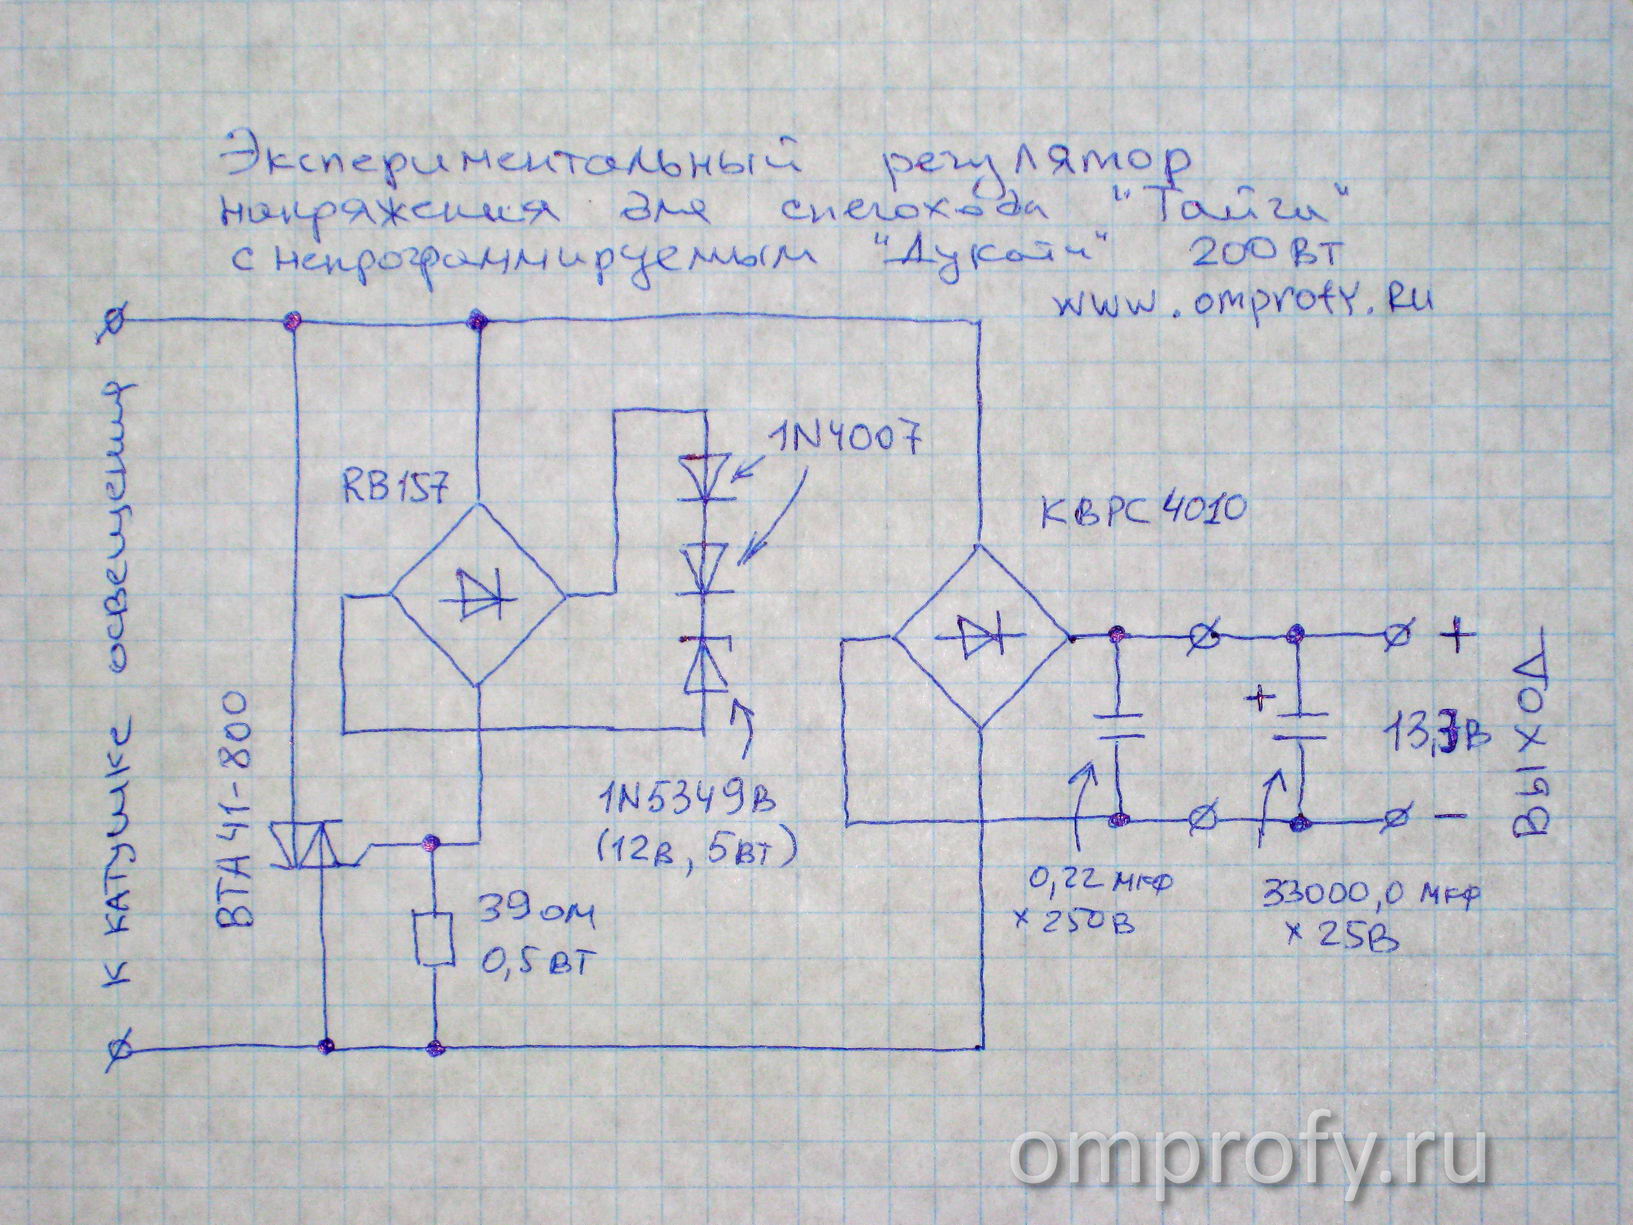 Экспериментальный регулятор
напряжения для снегохода "Тайга"
с непрограммируемым "Дукати" 200Вт
www.omprofy.Ru
к катушке освещения
RB157
1N4007
КВРС 4010
ВТА41-800
1N5349В
(12В, 5Вт)
39 ом
0,5 Вт
0,22 мкФ
х 250В
+
33000,0 мкФ
х 25В
+
13,3В
–
ВЫХОД
omprofy.ru